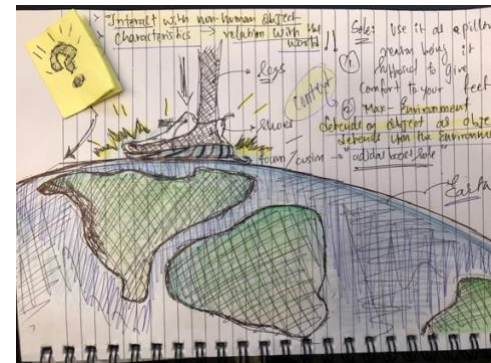 "Interact with non-human object
characteristics → relation with the
world
Legs
Context
Shoes
foam/cusion → "adidas boost sole"
Sole: Use it as a pillow
reason being it
①
supposed to give
comfort to your feet
② Max - Environment
depends on object as object
depends upon the Environment
Earth
?